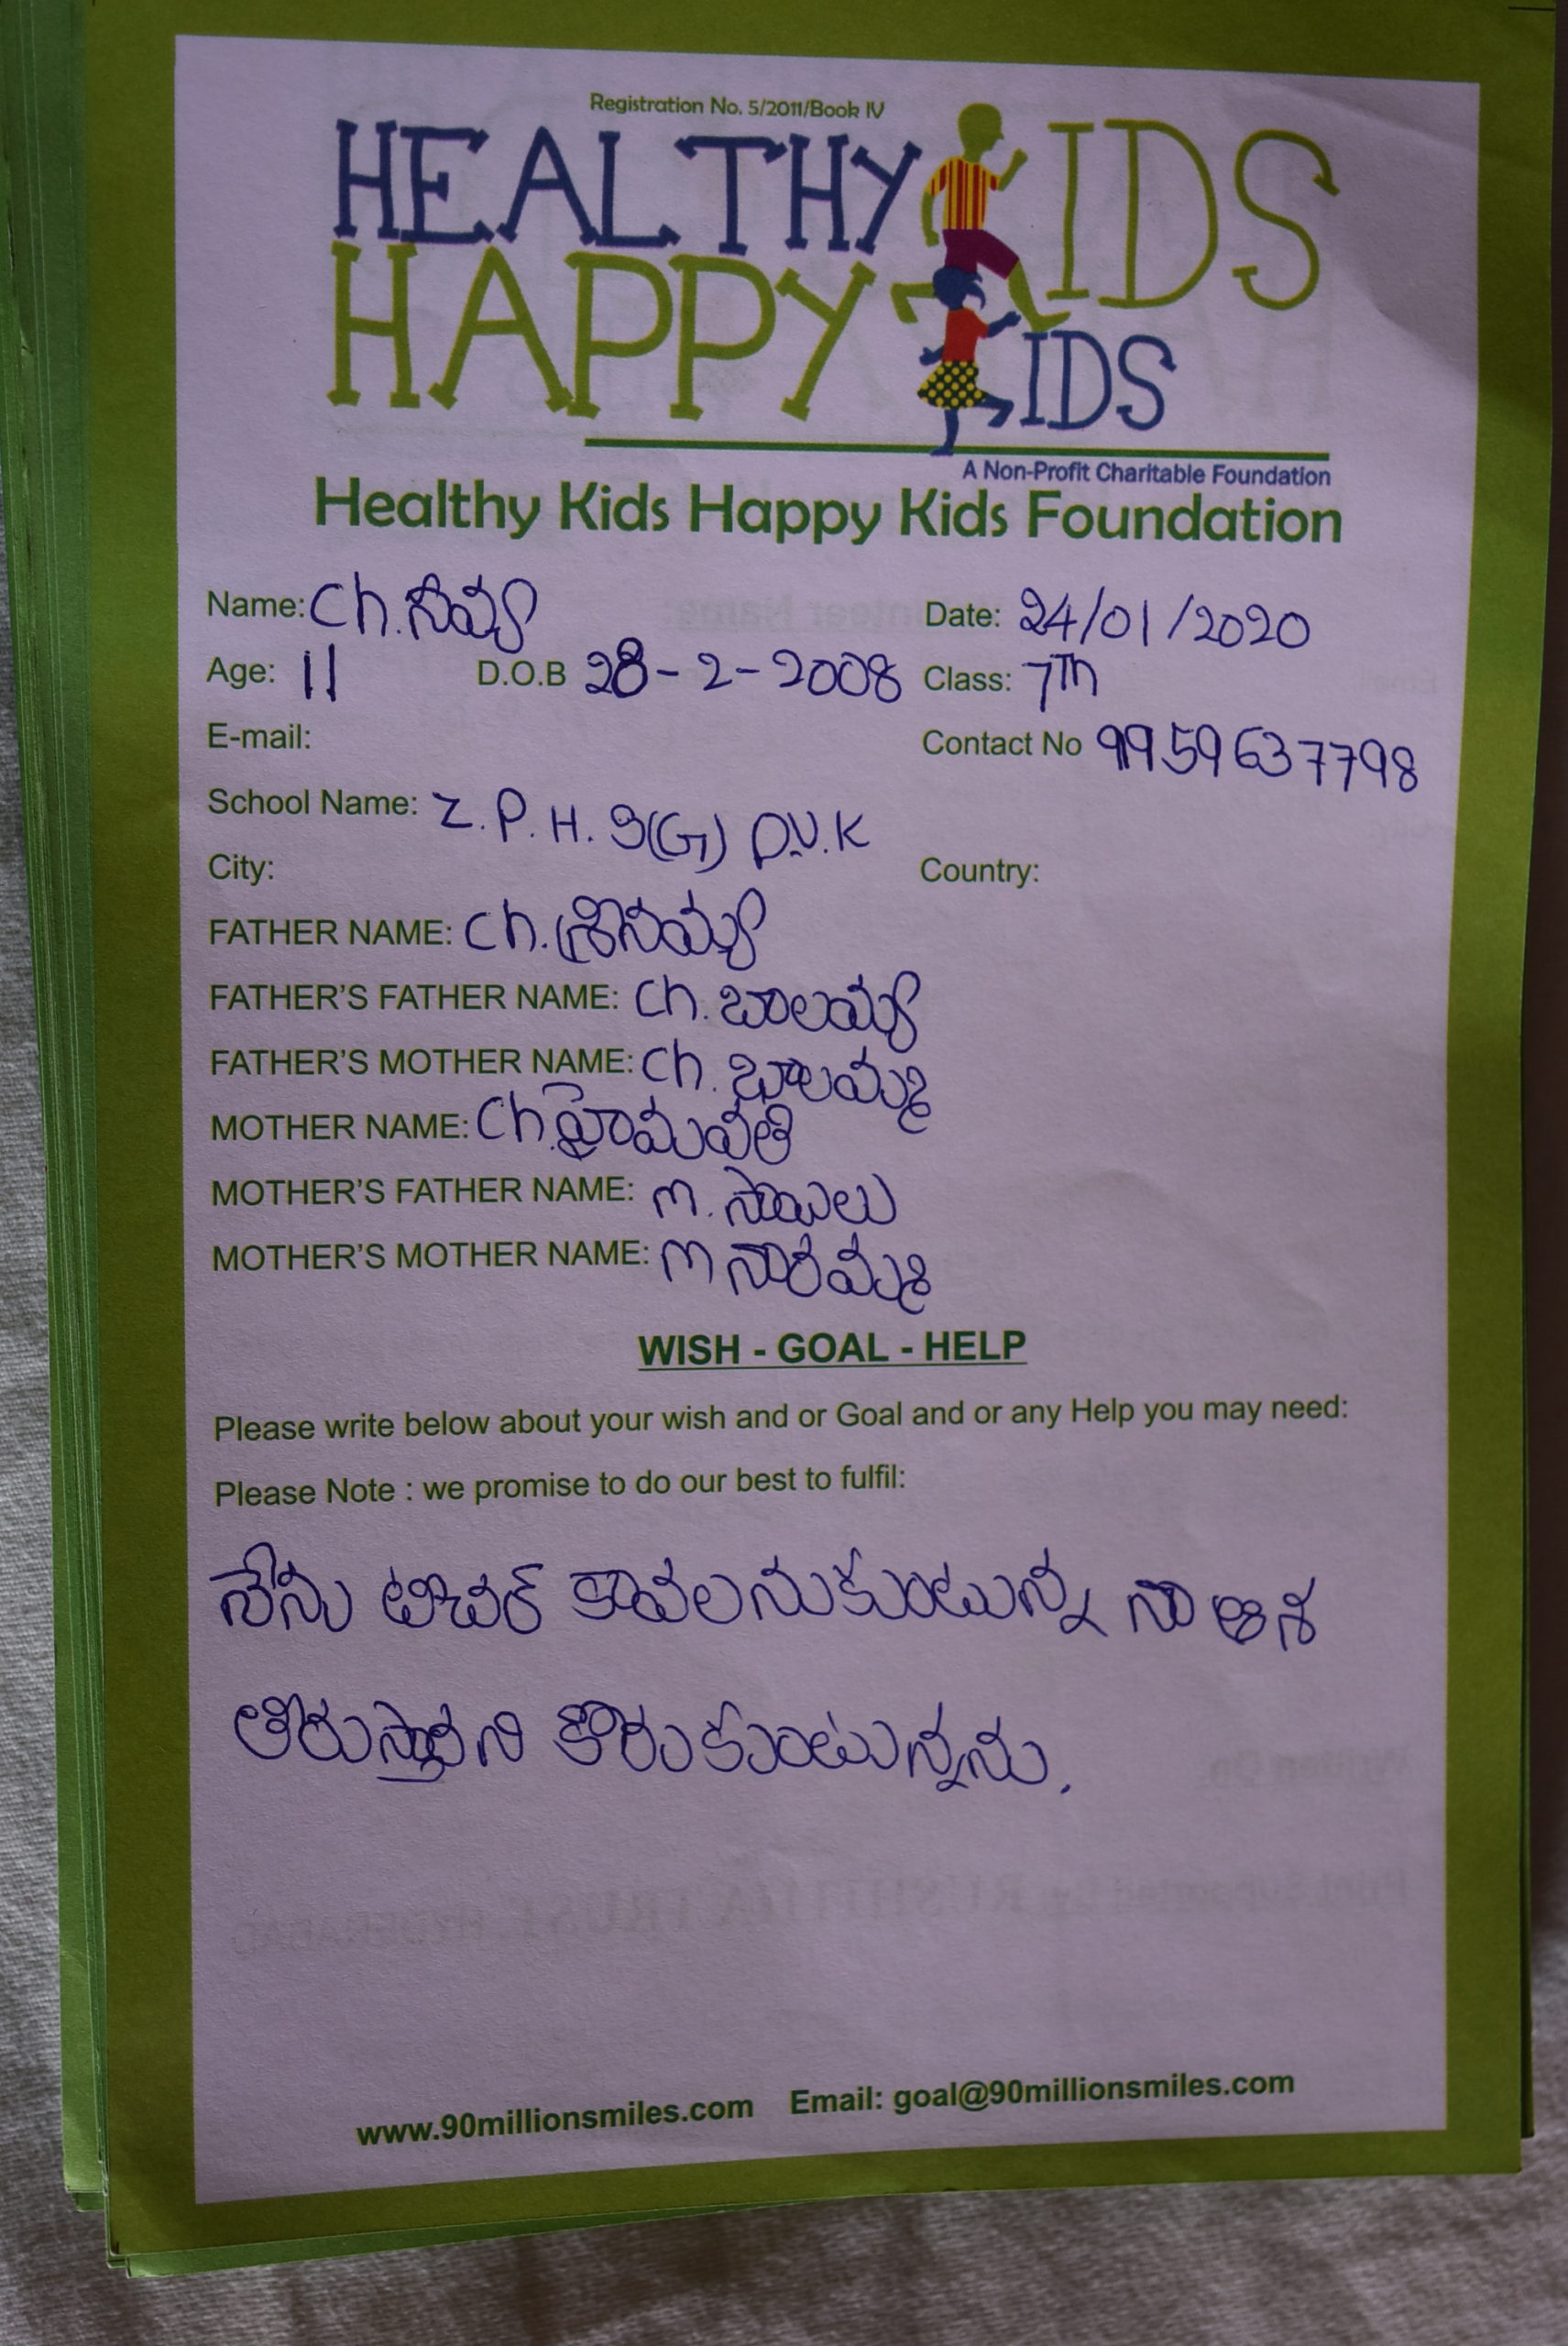 Registration No. 5/2011/Book IV
HEALTHY KIDS
HAPPY KIDS
A Non-Profit Charitable Foundation
Healthy Kids Happy Kids Foundation
Name: Ch. నవ్య Date: 24/01/2020
Age: 11 D.O.B 28-2-2008 Class: 7Th
E-mail: Contact No 9959637798
School Name: Z.P.H.S(G) D.V.K
City: Country:
FATHER NAME: Ch. శ్రీనయ్య
FATHER'S FATHER NAME: Ch. బాలయ్య
FATHER'S MOTHER NAME: Ch. బాలమ్మ
MOTHER NAME: Ch. హైమవతి
MOTHER'S FATHER NAME: M. సాయిలు
MOTHER'S MOTHER NAME: M నారమ్మ
WISH - GOAL - HELP
Please write below about your wish and or Goal and or any Help you may need:
Please Note : we promise to do our best to fulfil:
నేను టీచర్ కావలనుకుంటున్న నా ఆశ
తీరుస్తారని కోరుకుంటున్నను.
www.90millionsmiles.com Email: goal@90millionsmiles.com